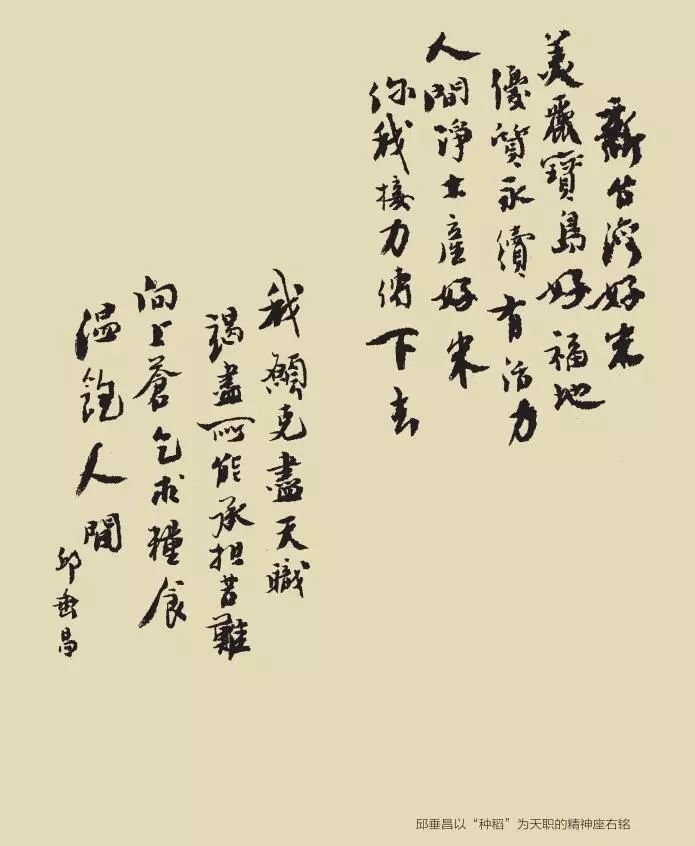 新台灣好米
美麗寶島好福地
優質永續有活力
人間淨土產好米
你我接力傳下去
我願克盡天職
竭盡所能承担苦難
向上蒼乞求糧食
温飽人間
邱垂昌
邱垂昌以“种稻”为天职的精神座右铭